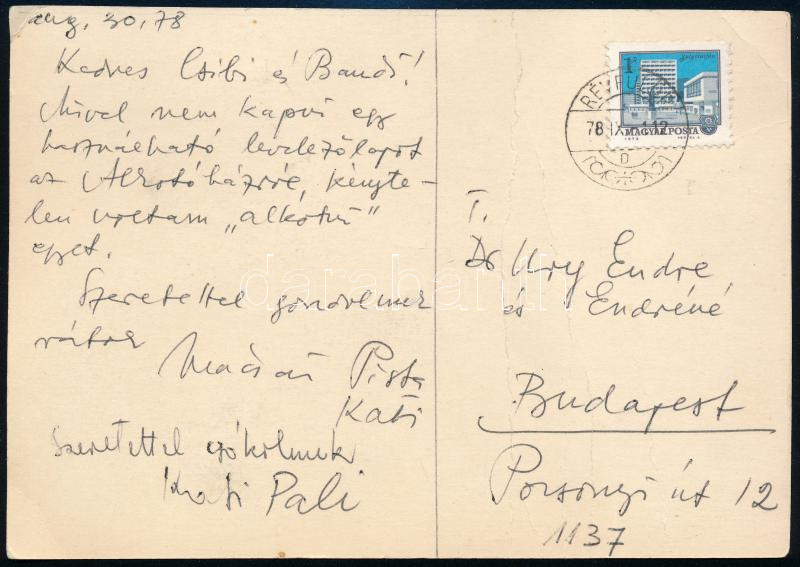 aug. 30. 78
Kedves Csibi és Bandi!
Mivel nem kapni egy
használható levelezőlapot
az Alkotóházról, kényte-
len voltam „alkotni”
egyet.
Szeretettel gondolunk
rátok
Pista
Kati
Szeretettel csókolunk
Kati Pali
1Ft
MAGYAR POSTA
RÉVFÜ
78 IX
T.
Dr Ury Endre
és Endréné
Budapest
Pozsonyi út 12
1137
darabanth